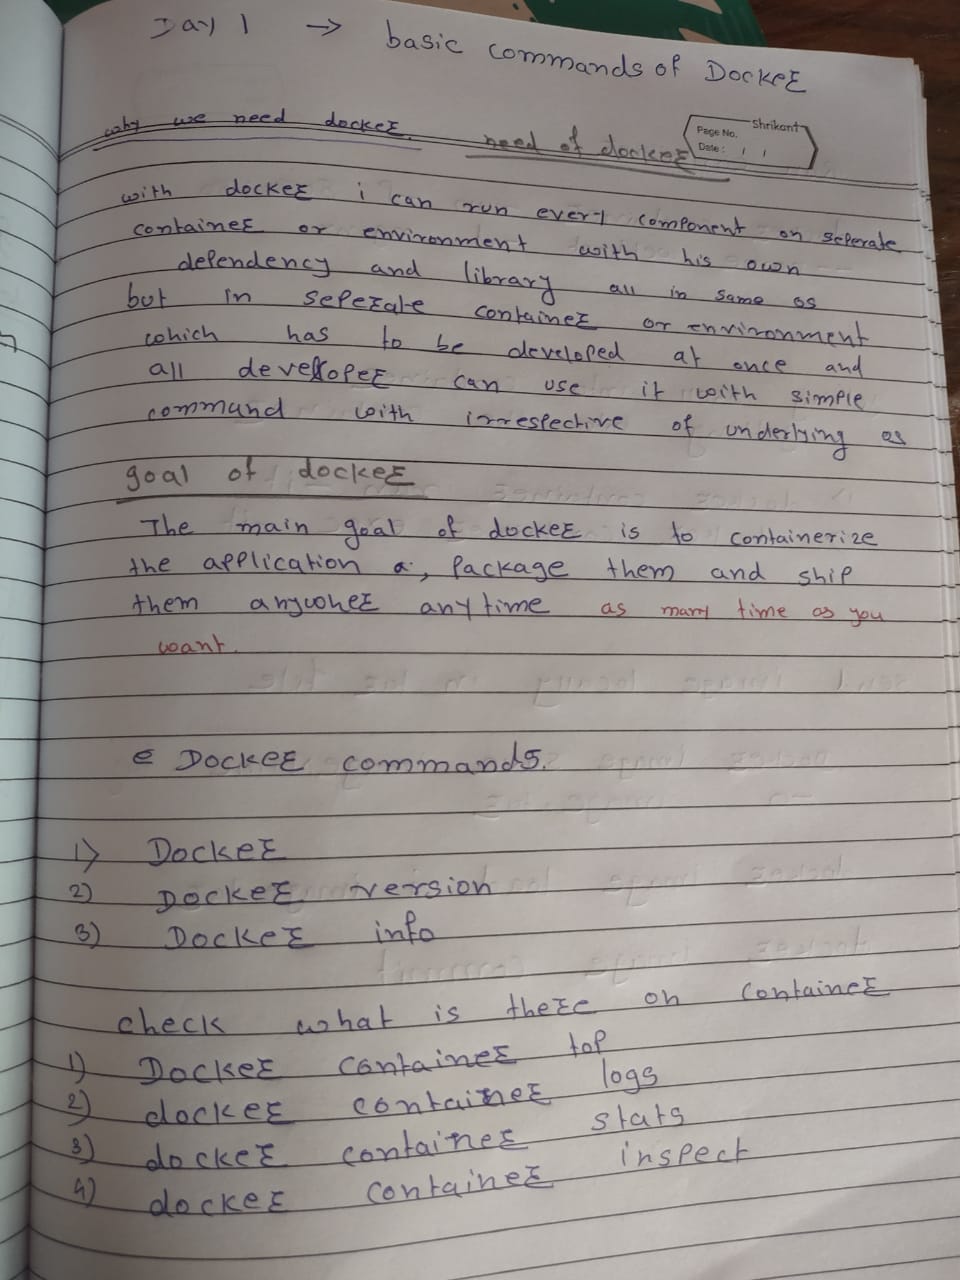 Day 1 → basic commands of Docker
Shrikant
Page No.
Date : / /
why we need docker. need of docker
with docker i can run every component on seperate
container or environment with his own
dependency and library all in same os
but in seperate container or environment
which has to be developed at once and
all developer can use it with simple
command with irrespective of underlying os
goal of docker
The main goal of docker is to containerize
the application , Package them and ship
them anywher anytime as many time as you
want.
Docker commands.
1) Docker
2) Docker version
3) Docker info
check what is there on container
1) Docker container top
2) docker container logs
3) docker container stats
4) docker container inspect